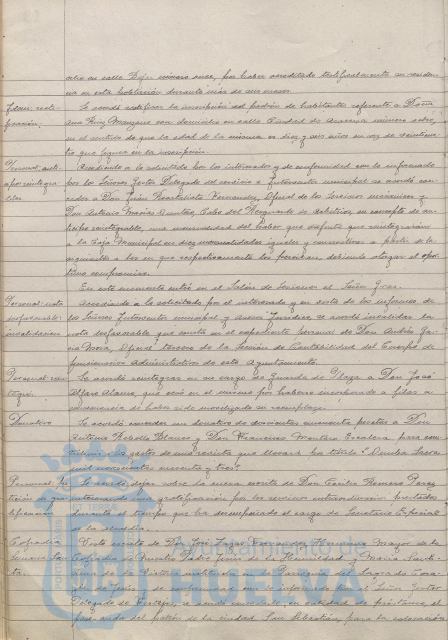 calle Béjar número once, por haber acreditado testificalmente su residen-
cia en esta población durante más de un
Idem. recti-
ficación.
Se acordó rectificar la inscripción del padrón de habitantes referente a Doña
Ana Ruiz Manzano con domicilio en calle Ciudad de Aracena número ocho,
en el sentido de que la edad de la misma es diez y seis años en vez de veintiuno
que figura en la inscripción.
Personal, anti-
cipo reintegra-
bles
Accediendo a lo solicitado por los interesados y de conformidad con lo informado
por los Señores Gestor Delegado del servicio e Interventor municipal se acordó con-
ceder a Don Julián Fernández, Oficial de los Servicios mecánicos y
Don Antonio Macías Cabo del Resguardo de Arbitrios, en concepto de an-
ticipo reintegrable, una mensualidad del haber que disfruta que reintegrarán
a la Caja Municipal en diez mensualidades iguales y consecutivas a partir de la
siguiente a la en que respectivamente los perciban, debiendo otorgar el opor-
tuno compromiso.
En este momento entró en el Salón de Sesiones el Señor
Personal: nota
desfavorable
invalidación
Accediendo a lo solicitado por el interesado y en vista de los informes de
los Señores Interventor municipal y Asesor Jurídico, se acordó invalidar la
nota desfavorable que consta en el expediente personal de Don Andrés Gar-
cía Mora, Oficial tercero de la Sección de Contabilidad del Cuerpo de
funcionarios Administrativos de este Ayuntamiento.
Personal rein-
tegro.
Se acordó reintegrar en su cargo de Guarda de Plaza a Don José
Alfaro que cesó en el mismo por haberse incorporado a filas a
consecuencia de haber sido movilizado su reemplazo.
Donativo
Se acordó conceder un donativo de doscientas cincuenta pesetas a Don
Antonio Blanco y Don Francisco Montero Escalera para con-
tribuir a los gastos de una revista que llevará por título "Huelva Sacra
mil novecientos cuarenta y tres".
Personal.
tición de gra-
tificación
Se acordó dejar sobre la mesa escrito de Don Cecilio Romero
interesando una gratificación por los servicios extraordinarios prestados
durante el tiempo que ha desempeñado el cargo de Secretario Especial
de la Alcaldía.
Cofradía
Semana San-
ta.
Visto escrito de Don José Fernández, Hermano Mayor de la
Cofradía de Nuestro Padre Jesús de la Humildad y María Santí-
sima de la Victoria, instituida en la Parroquia del Sagrado Cora-
zón de Jesús, y de conformidad con lo informado por el Señor Gestor
Delegado de Festejos, se acordó concederle en calidad de préstamo, el
paso-andas del patrón de la ciudad San Sebastián, para la colocación
Ayuntamiento de
HUELVA